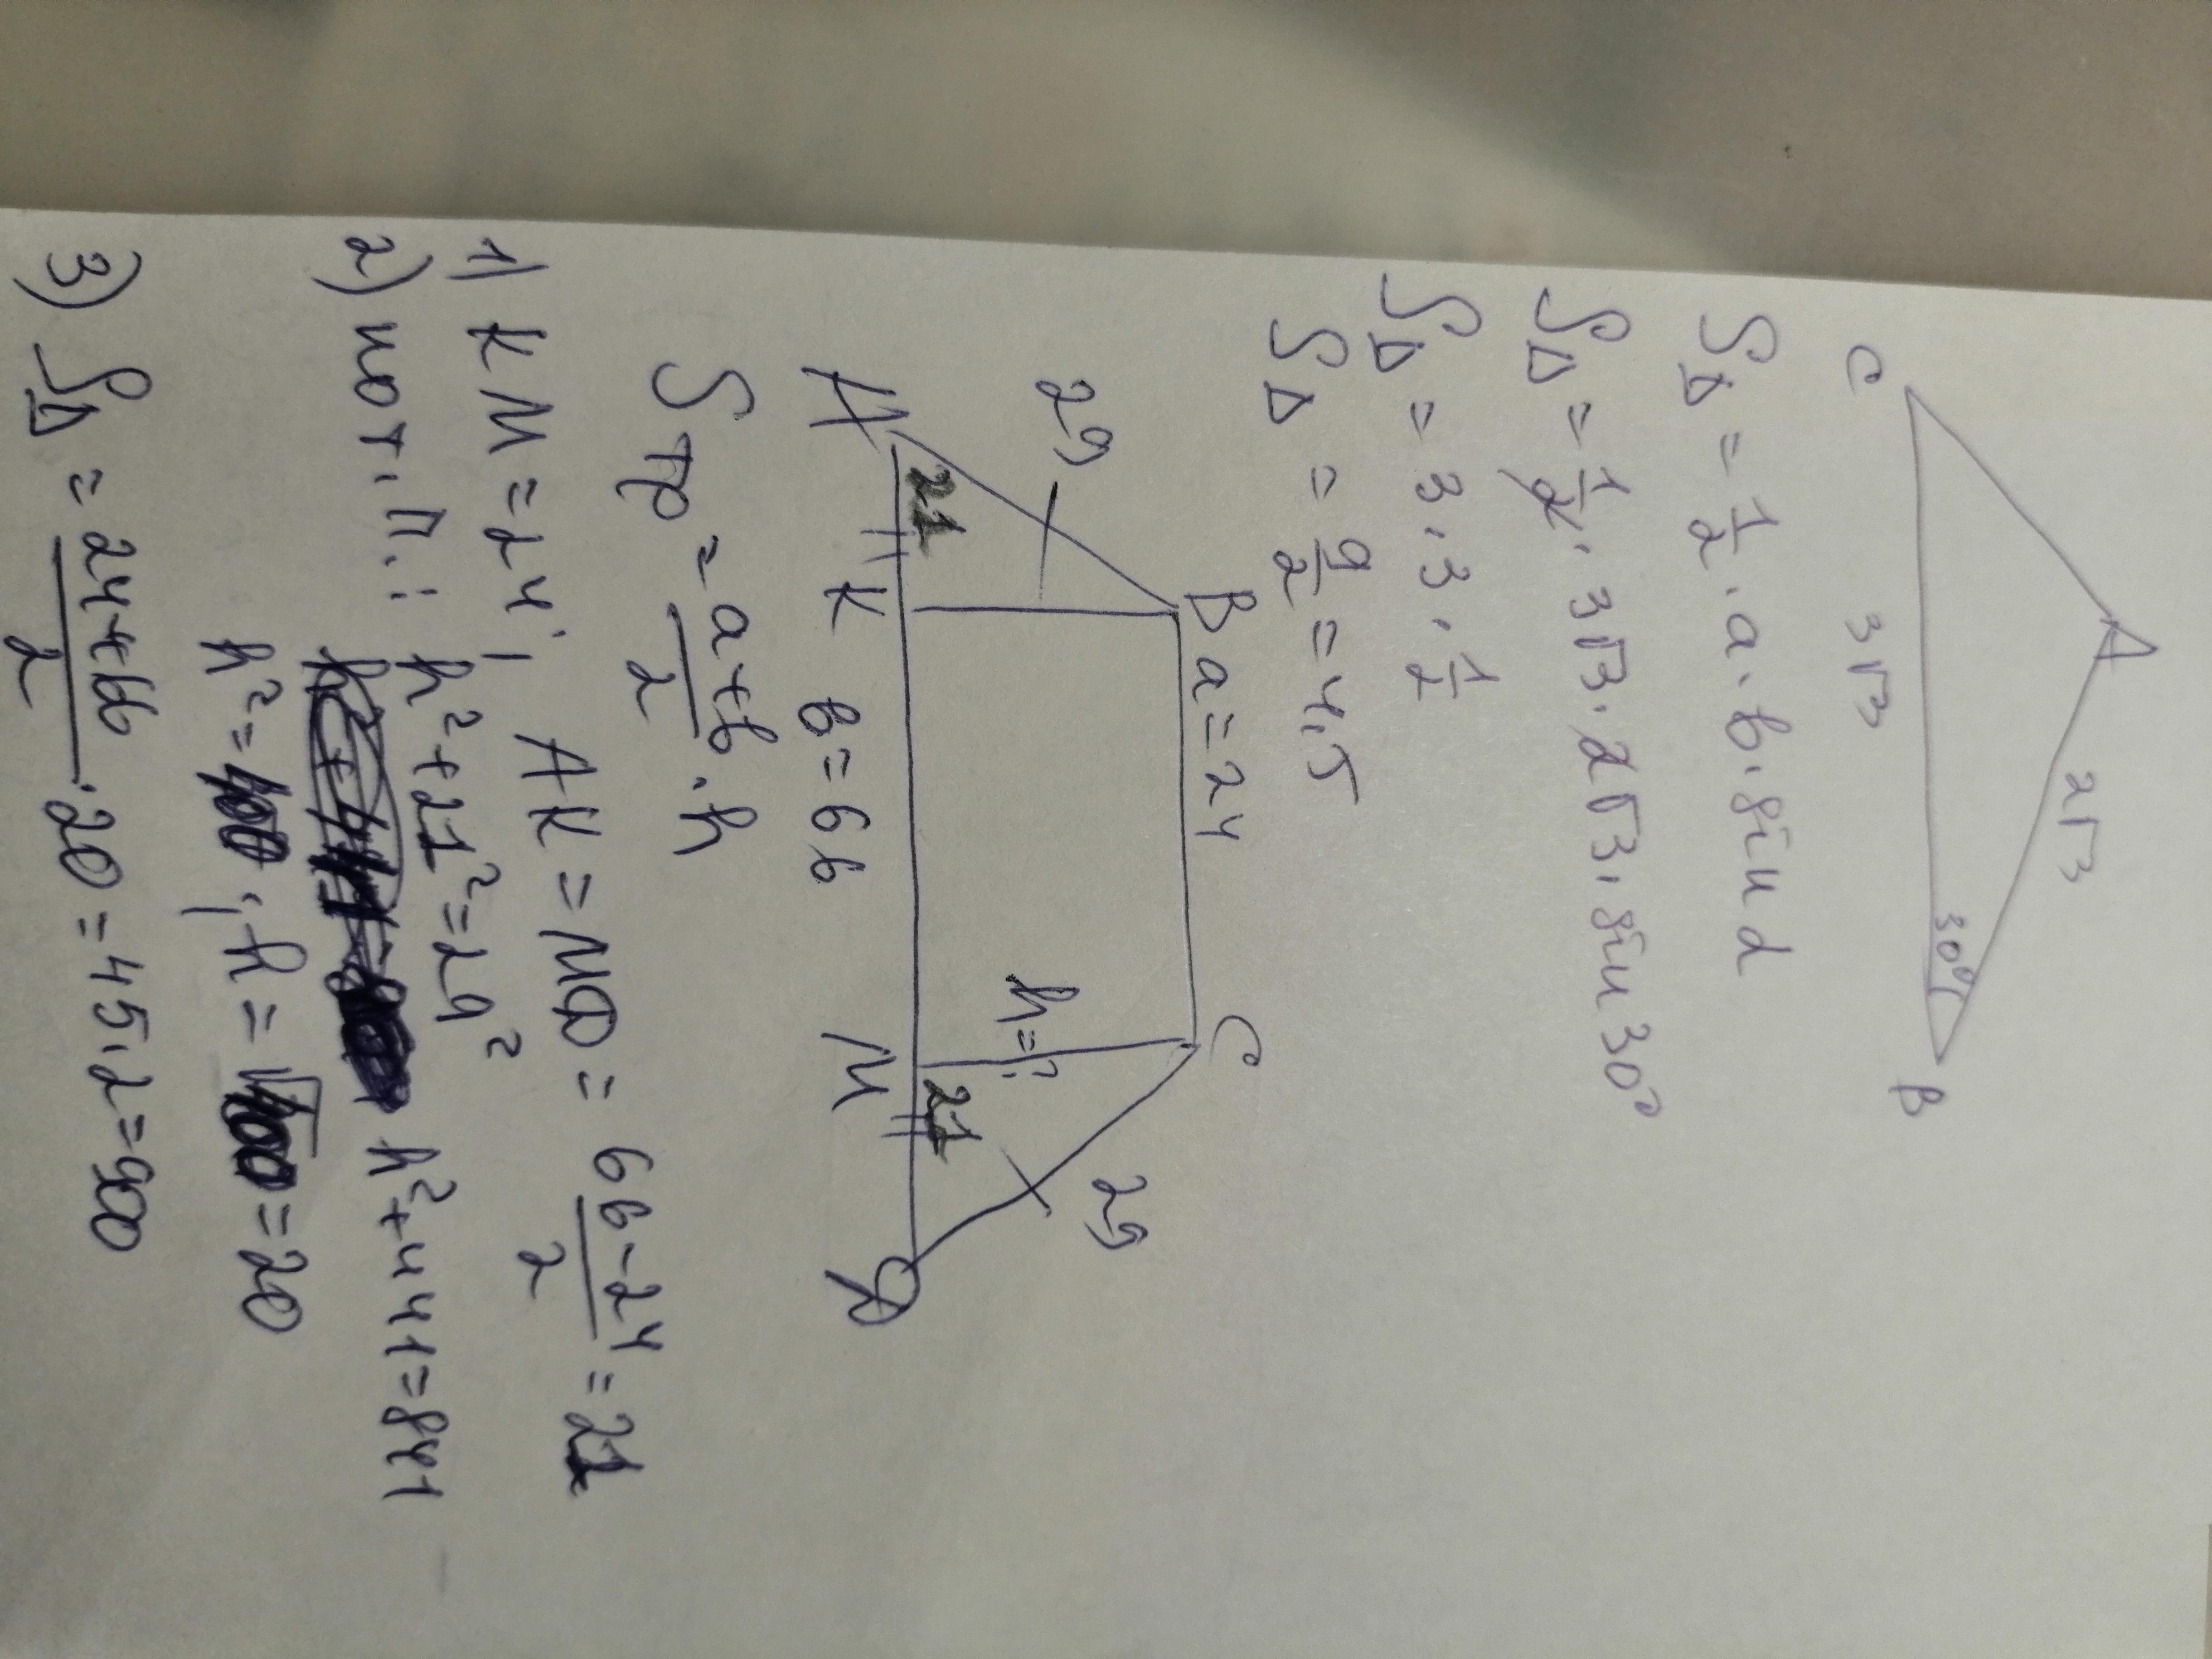 A
2√3
C
3√3
30°
B
S△ = 1/2 · a · b · sin α
S△ = 1/2 · 3√3 · 2√3 · sin 30°
S△ = 3 · 3 · 1/2
S△ = 9/2 = 4,5
B a = 24 C
29
29
h = ?
21
21
A K b = 66 M D
Sтр = a+b/2 · h
1) KM = 24; AK = MD = 66-24/2 = 21
2) по т. П.: h² + 21² = 29²
h² + 441 = 841
h² = 400; h = √400 = 20
3) S△ = 24+66/2 · 20 = 45 · 2 = 900